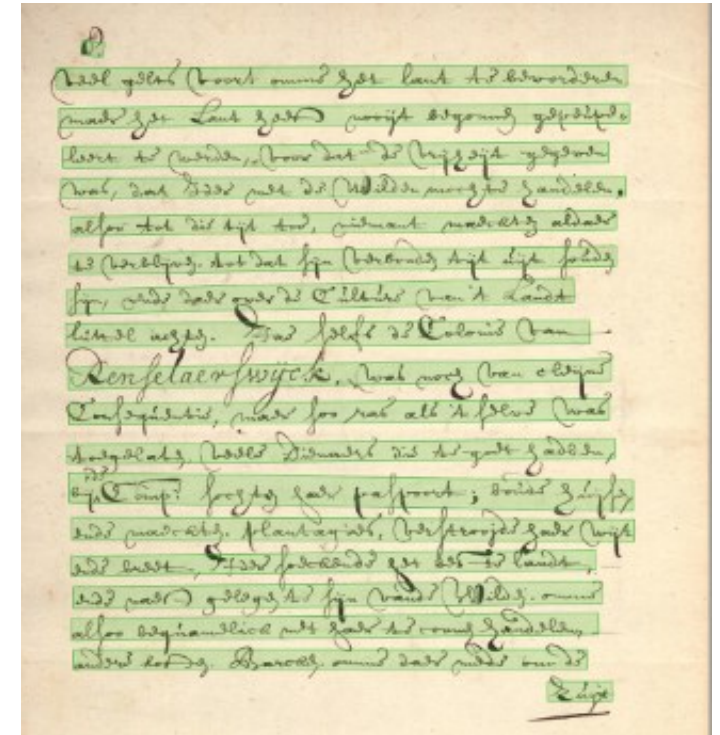 8
veel gelts voort omme het lant te bevorderen
maer het Lant heeft nooijt begonnen gepeupe-
leert te werden, voor dat de vrijheijt gegeven
was, dat Ider met de Wilden mochte handelen,
alsoo tot die tijt toe, niemant maeckte aldaer
te verblijven tot dat sijn verbonden tijt uijt soude
sijn, ende daer over de Culture van 't Landt
luttel achten. Jae selfs de Colonie van
Renselaerswijck, was noch van cleijne
Consequentie, maer soo ras als 't selve was
toegelaten, veele Dienaers die te goet hadden,
bij de Comp: sochten haer paspoort; boude huijsen,
ende maeckten plantagies, verstroijde haer wijt
ende breet, Ider soeckende het beste landt,
ende naest gelegen te sijn vande Wilden omme
alsoo bequamelick met haer te connen handelen,
andere Barcken omme daer mede om de
Zuijt